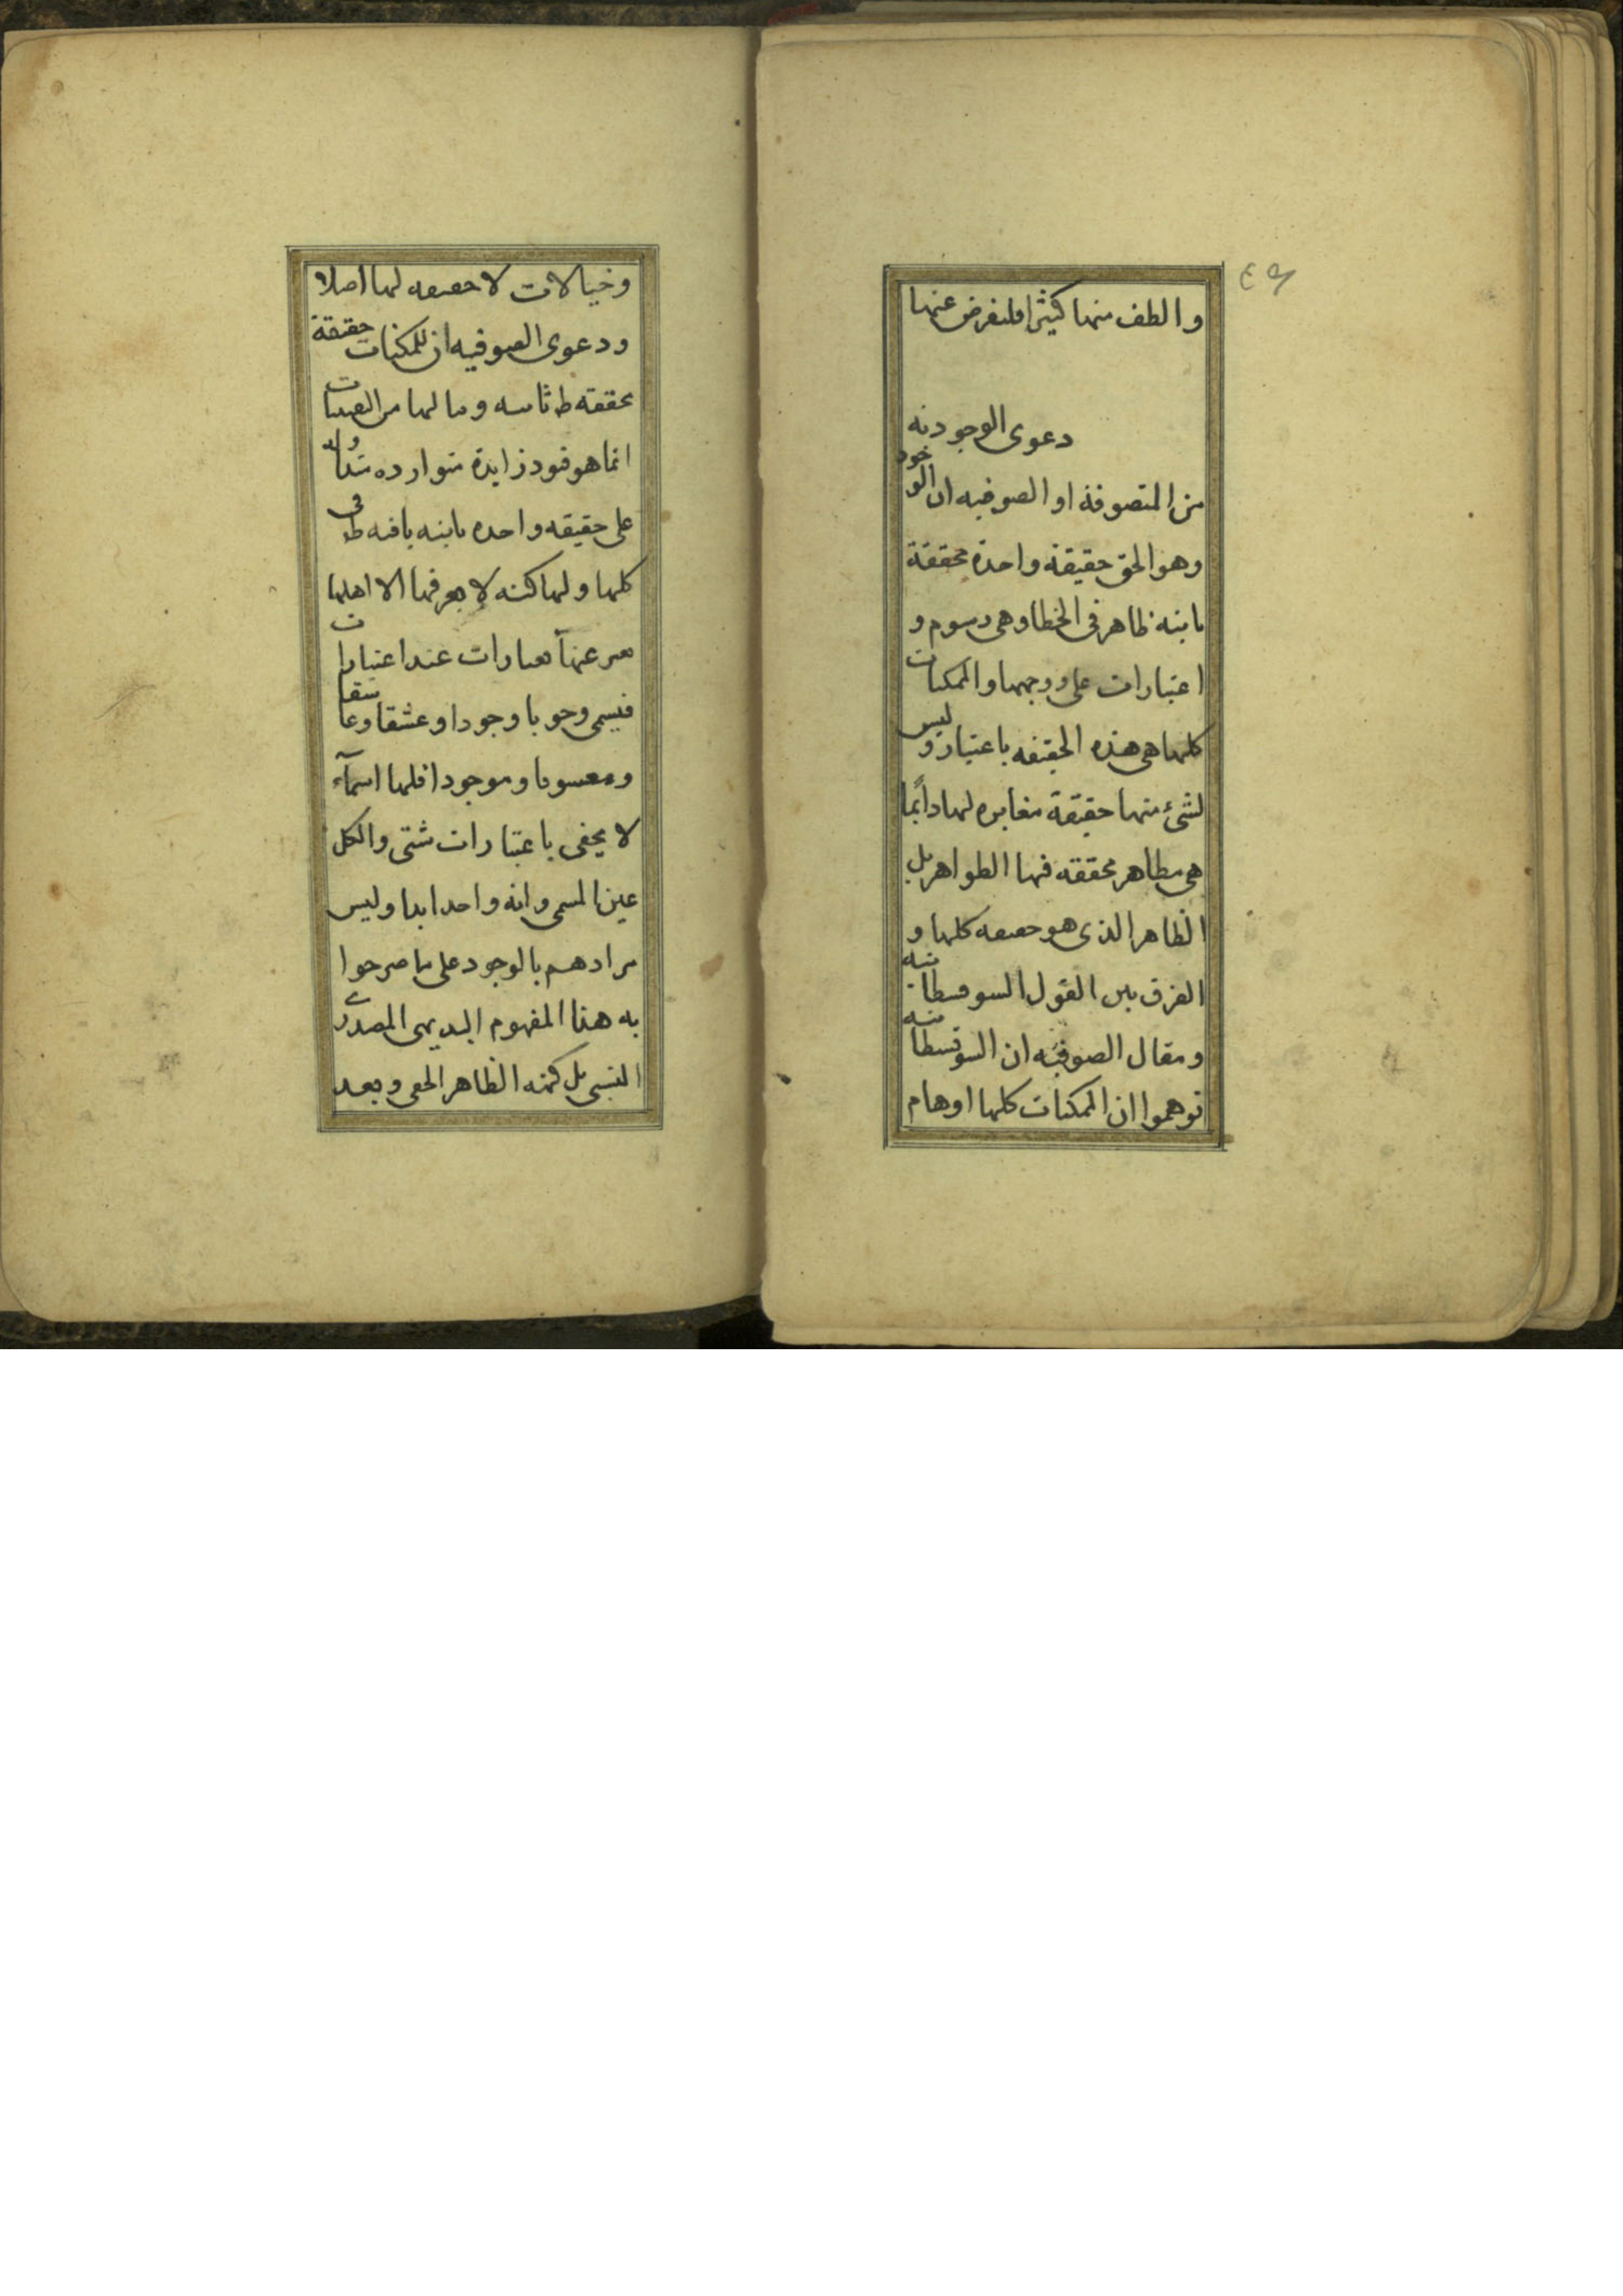 ٤٩
والطف منها كثيرا فلنفرض عنها
دعوى الوجودية
من المتصوفة او الصوفيه ان الوجود
وهو الحق حقيقة واحدة محققة
ظاهر فى وهى رسوم و
اعتبارات على وجهها والممكنات
كلها هى هذه الحقيقه باعتبار وليس
لشئ منها حقيقة مغايره لها دائما
هى مظاهر محققه فيها الظواهر بل
الظاهر الذى هو حقيقه كلها و
الفرق بين القول السوفسطائيه
ومقال الصوفيه ان السوفسطائيه
توهموا ان الممكنات كلها اوهام
وخيالات لا حقيقه لها اصلا
ودعوى الصوفيه ان للمكنات حقيقة
محققه وما لها من التعينات
انما هو قيود زايدة متوارده
على حقيقه واحده باقيه فى
كلها ولها كنه لا يعرفها الا اهلها
يعبر عنها بعبارات عند اعتبارات
فيسمى وجوبا وجودا وعشقا وعاشقا
ومعشوقا وموجودا فلها اسماء
لا يخفى باعتبارات شتى والكل
عين المسمى وانه واحد ابدا وليس
مرادهم بالوجود على ما صرحوا
به هذا المفهوم البديهى المصدرى
النسبى بل كنه الظاهر الحق وبعد